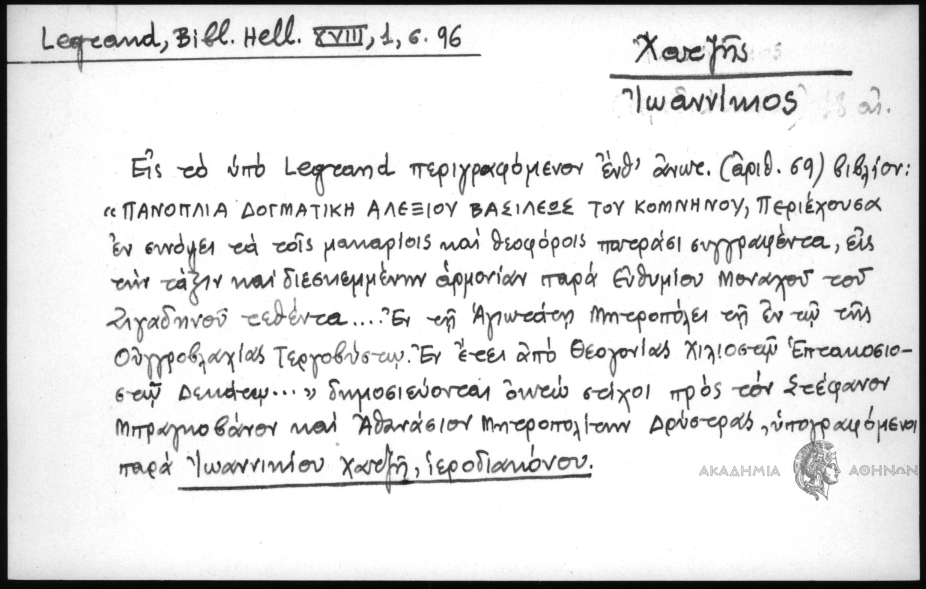 Legrand, Bibl. Hell. XVIII, 1, σ. 96
Χατζῆς
Ἰωαννίκιος
18 αἰ.
Εἰς τὸ ὑπὸ Legrand περιγραφόμενον ἔνθ' ἀνωτ. (ἀριθ. 69) βιβλίον:
"ΠΑΝΟΠΛΙΑ ΔΟΓΜΑΤΙΚΗ ΑΛΕΞΙΟΥ ΒΑΣΙΛΕΩΣ ΤΟΥ ΚΟΜΝΗΝΟΥ, Περιέχουσα
ἐν συνόψει τὰ τοῖς μακαρίοις καὶ θεοφόροις πατράσι συγγραφέντα, εἰς
τὴν τάξιν καὶ διεσκεμμένην ἁρμονίαν παρὰ Εὐθυμίου Μοναχοῦ τοῦ
Ζιγαδηνοῦ τεθέντα.... Ἐν τῇ Ἁγιωτάτῃ Μητροπόλει τῇ ἐν τῷ τῆς
Οὐγγροβλαχίας Τεργοβύστῳ. Ἐν ἔτει ἀπὸ Θεολογονίας Χιλιοστῷ Ἑπτακοσιο-
στῷ Δεκάτῳ..." δημοσιεύονται ὀκτὼ στίχοι πρὸς τὸν Στέφανον
Μπραγκοβάνον καὶ Ἀθανάσιον Μητροπολίτην Δρύστρας, ὑπογραφόμενοι
παρὰ Ἰωαννικίου Χατζῆ, ἱεροδιακόνου.
ΑΚΑΔΗΜΙΑ ΑΘΗΝΩΝ